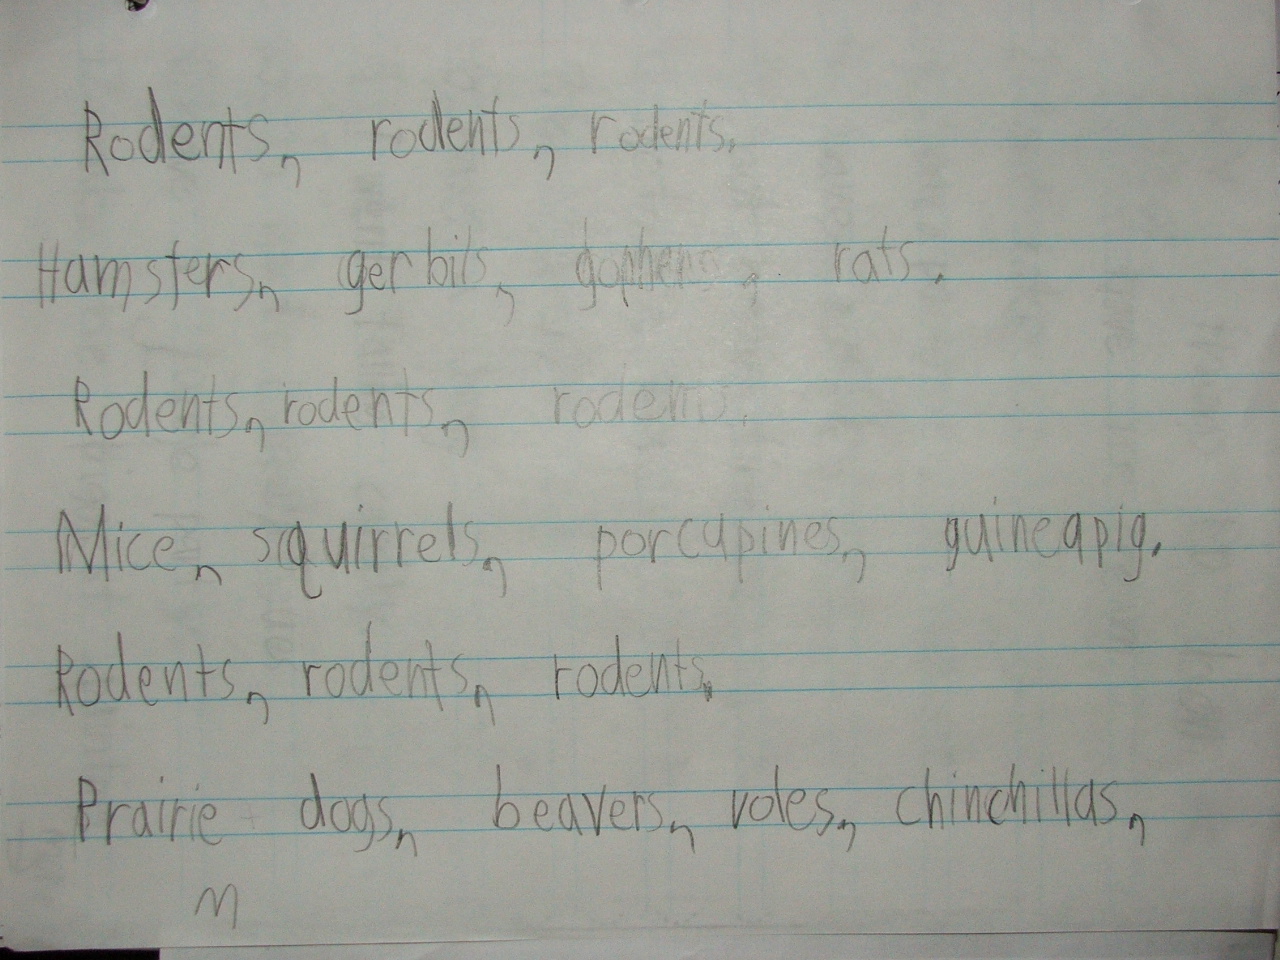 Rodents, rodents, rodents.
Hamsters, gerbils, gophers, rats.
Rodents, rodents, rodents.
Mice, squirrels, porcupines, guineapig.
Rodents, rodents, rodents.
Prairie dogs, beavers, voles, chinchillas,
M